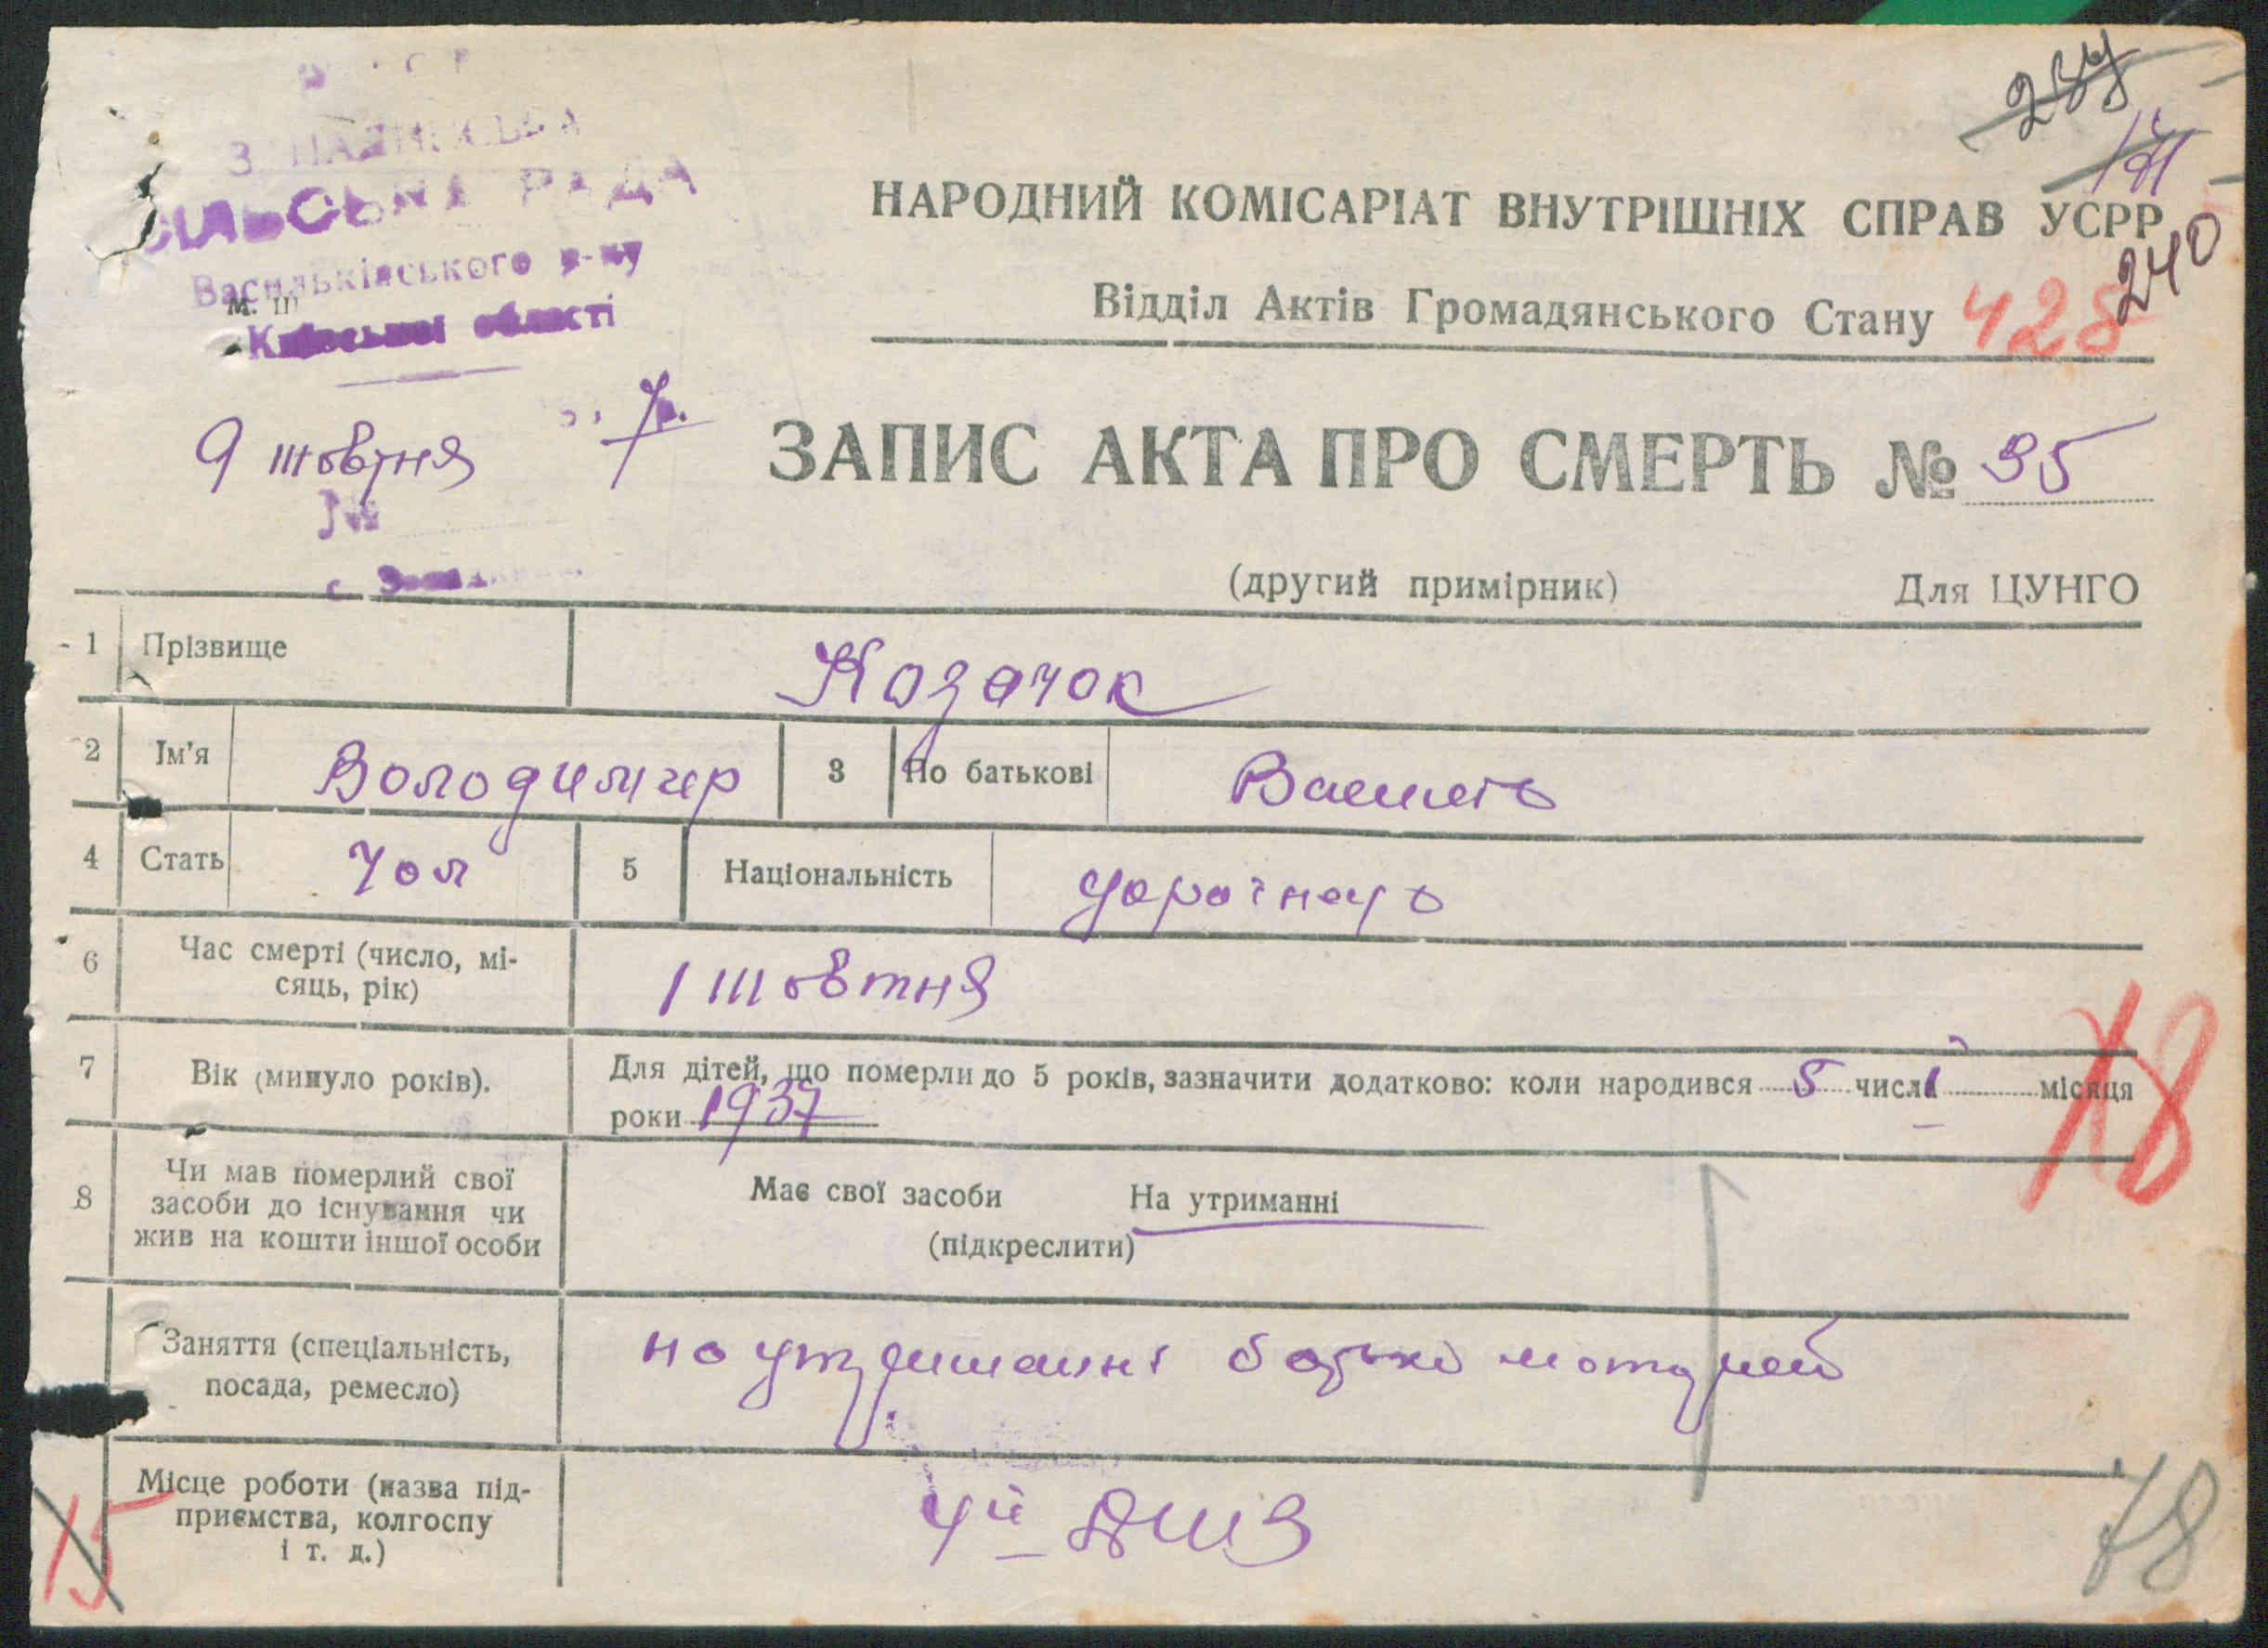 СІЛЬСЬКА РАДА
Васильківського р-ну
М. П.
Київської області
9 жовтня 7р.
№
237
171
240
428
НАРОДНИЙ КОМІСАРІАТ ВНУТРІШНІХ СПРАВ УСРР
Відділ Актів Громадянського Стану
ЗАПИС АКТА ПРО СМЕРТЬ № 95
(другий примірник) Для ЦУНГО
1 Прізвище Козачок
2 Ім'я Володимир 3 По батькові
4 Стать Чол 5 Національність Українець
6 Час смерті (число, мі-
сяць, рік) 1 жовтня
7 Вік (минуло років). Для дітей, що померли до 5 років, зазначити додатково: коли народився 5 числа місяця
роки 1937
18
8 Чи мав померлий свої
засоби до існування чи
жив на кошти іншої особи
Має свої засоби На утриманні
(підкреслити)
Заняття (спеціальність,
посада, ремесло) на утриманні батька матерей
Місце роботи (назва під-
приємства, колгоспу
і т. д.)
15
18